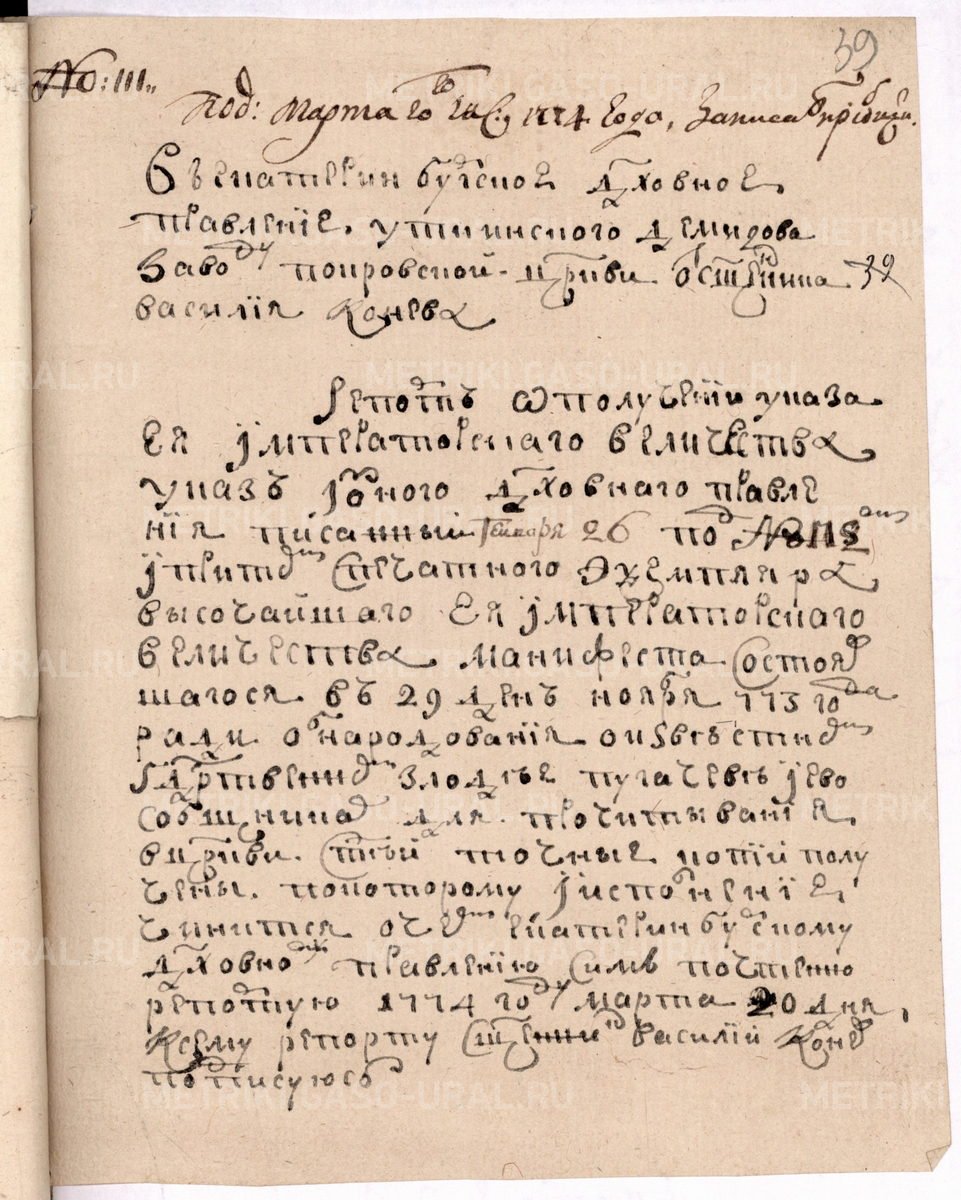 39
№: 111
Под: марта 1774 года, Записа
Въ екатеринбургское духовное
правление. уткинского демидова
заводу покровской церкви священника 39
василия Конева
Репортъ ѡ получении указа
Ея императорскаго величества
указъ изоного духовнаго правле
нїя писанный генваря 26 под №
и притом с печатного экземпляра
высочайшаго Ея императорскаго
величества манифеста состояв
шагося въ 29 день ноября 773 года
ради обнародования о извѣстном
государственном злодѣе пугачевѣ и ево
сообщниках для прочитывания
в церкви. с точные копии полу
чены. по которому и исполнение
чинится о чем екатеринбургскому
духовному правлению симъ почтенно
репортую 1774 году марта 20 дня,
К сему репорту священникъ Василий Конев
подписуюсь
METRIKI.GASO-URAL.RU